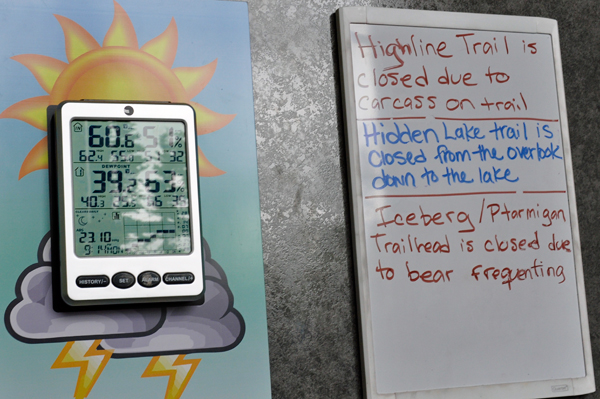 60.6
62.4
32
DEWPOINT
39.2 63%
40.3
23.10
HISTORY/-
SET
ALARM
CHANNEL/+
Highline Trail is
closed due to
carcass on trail
Hidden Lake trail is
closed from the overlook
down to the lake
Iceberg/Ptarmigan
Trailhead is closed due
to bear frequenting